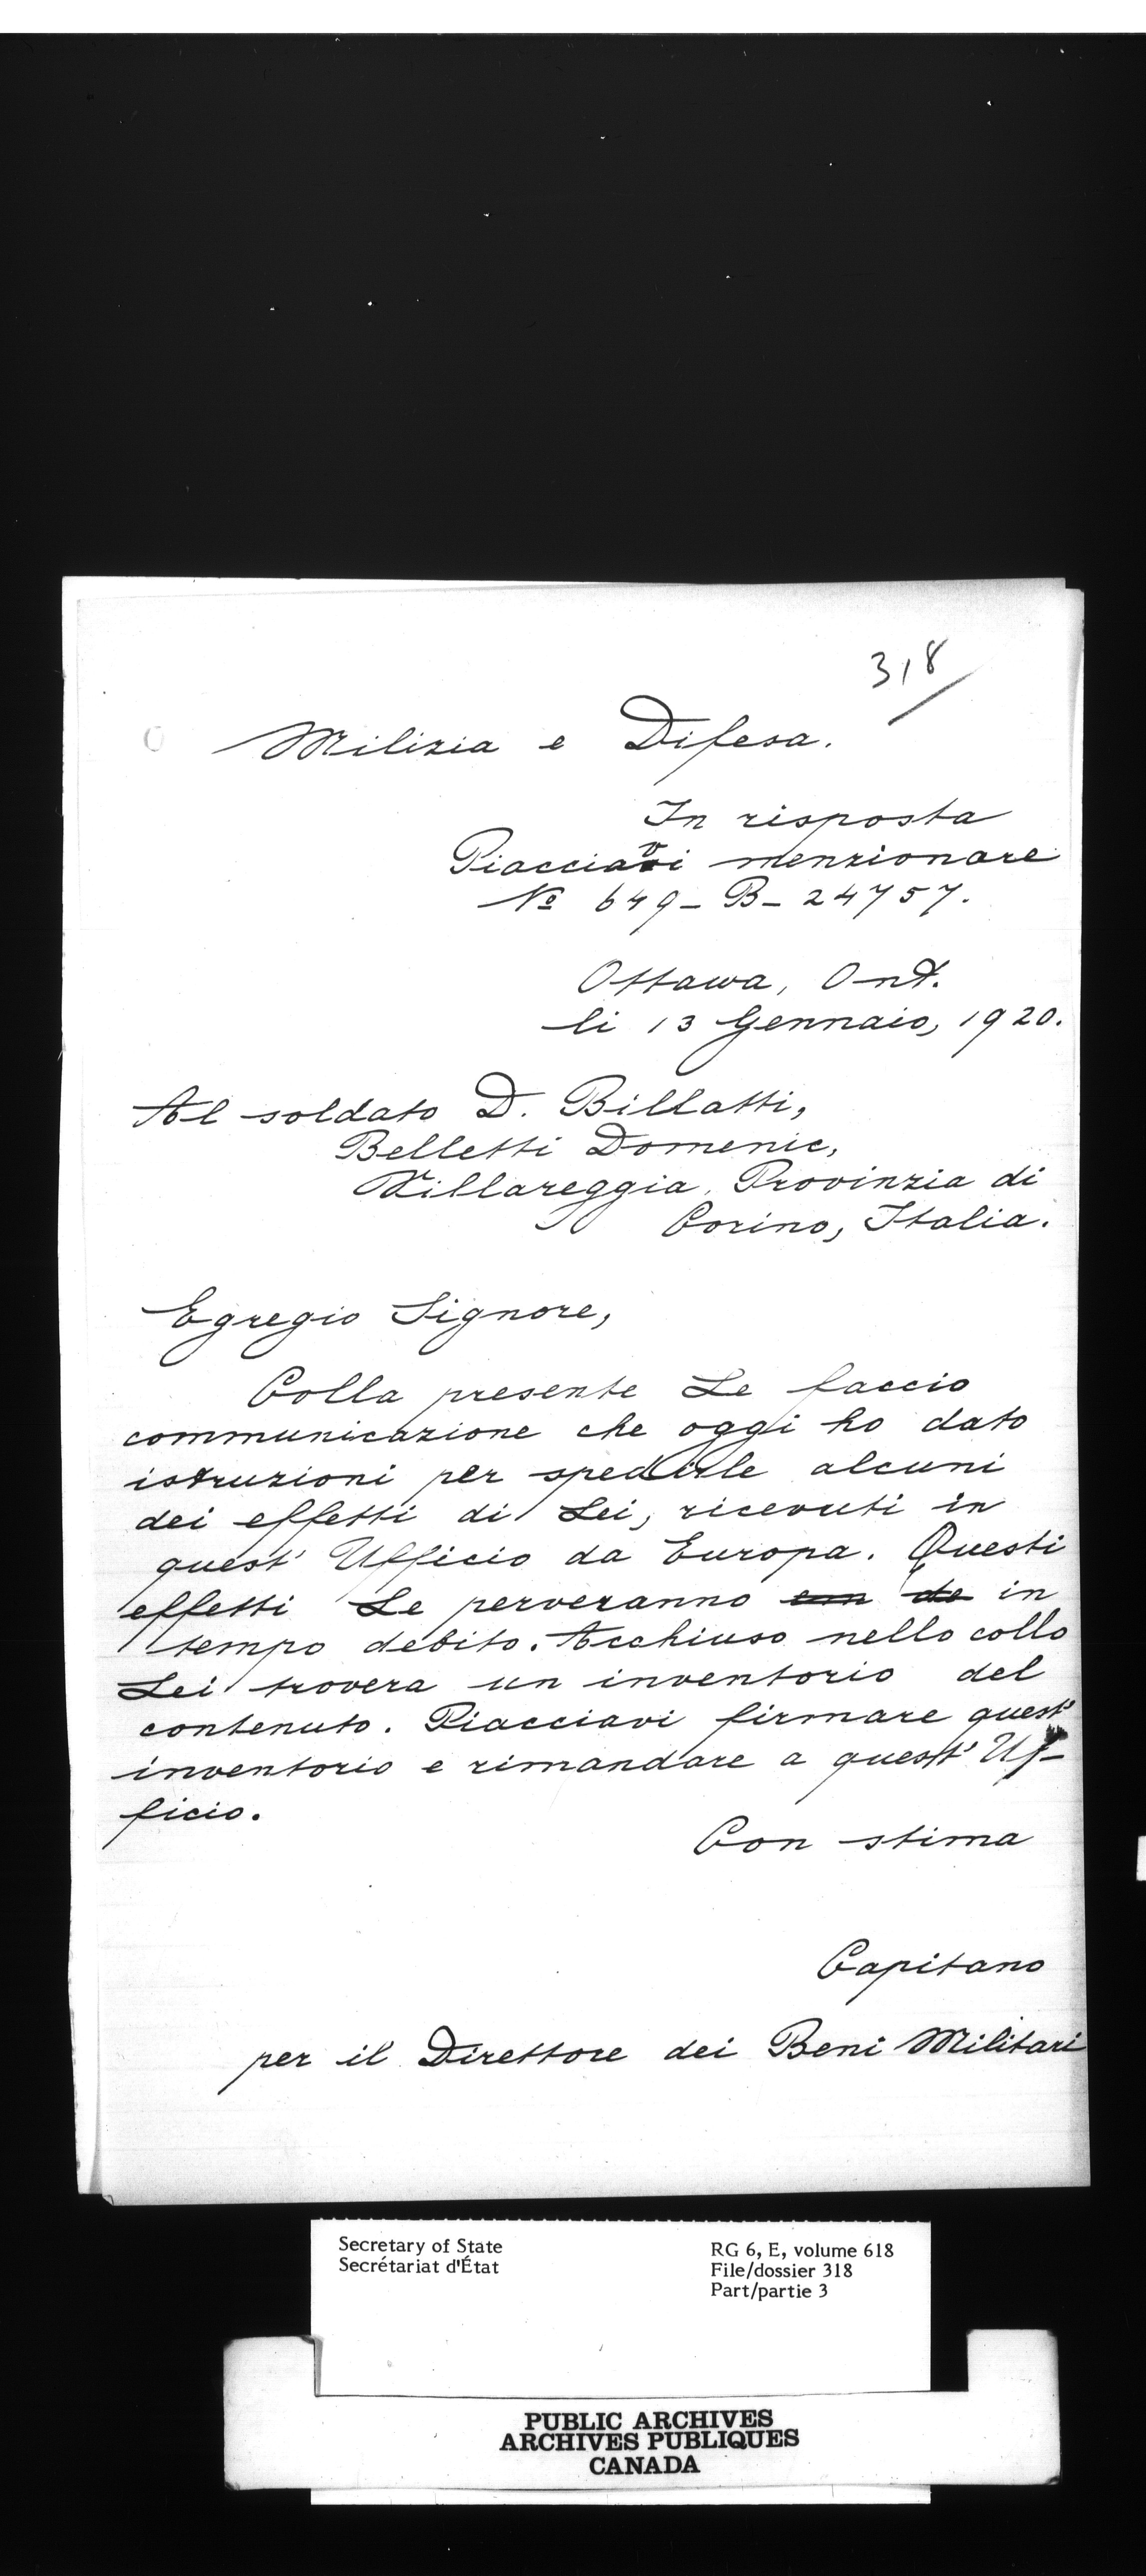 318
Milizia e Difesa.
In risposta
Piacciavi menzionare
No 649-B-24757.
Ottawa, Ont.
li 13 Gennaio, 1920.
Al soldato D. Billatti,
Belletti Domenic,
Villareggia, Provinzia di
Torino, Italia.
Egregio Signore,
Colla presente Le faccio
communicazione che oggi ho dato
istruzioni per spedirle alcuni
dei effetti di Lei, ricevuti in
quest' Ufficio da Europa. Questi
effetti Le perveranno in
tempo debito. Acchiuso nello collo
Lei trovera un inventorio del
contenuto. Piacciavi firmare quest'
inventorio e rimandare a quest' Uf-
ficio.
Con stima
Capitano
per il Direttore dei Beni Militari
Secretary of State
Secrétariat d'État
RG 6, E, volume 618
File/dossier 318
Part/partie 3
PUBLIC ARCHIVES
ARCHIVES PUBLIQUES
CANADA